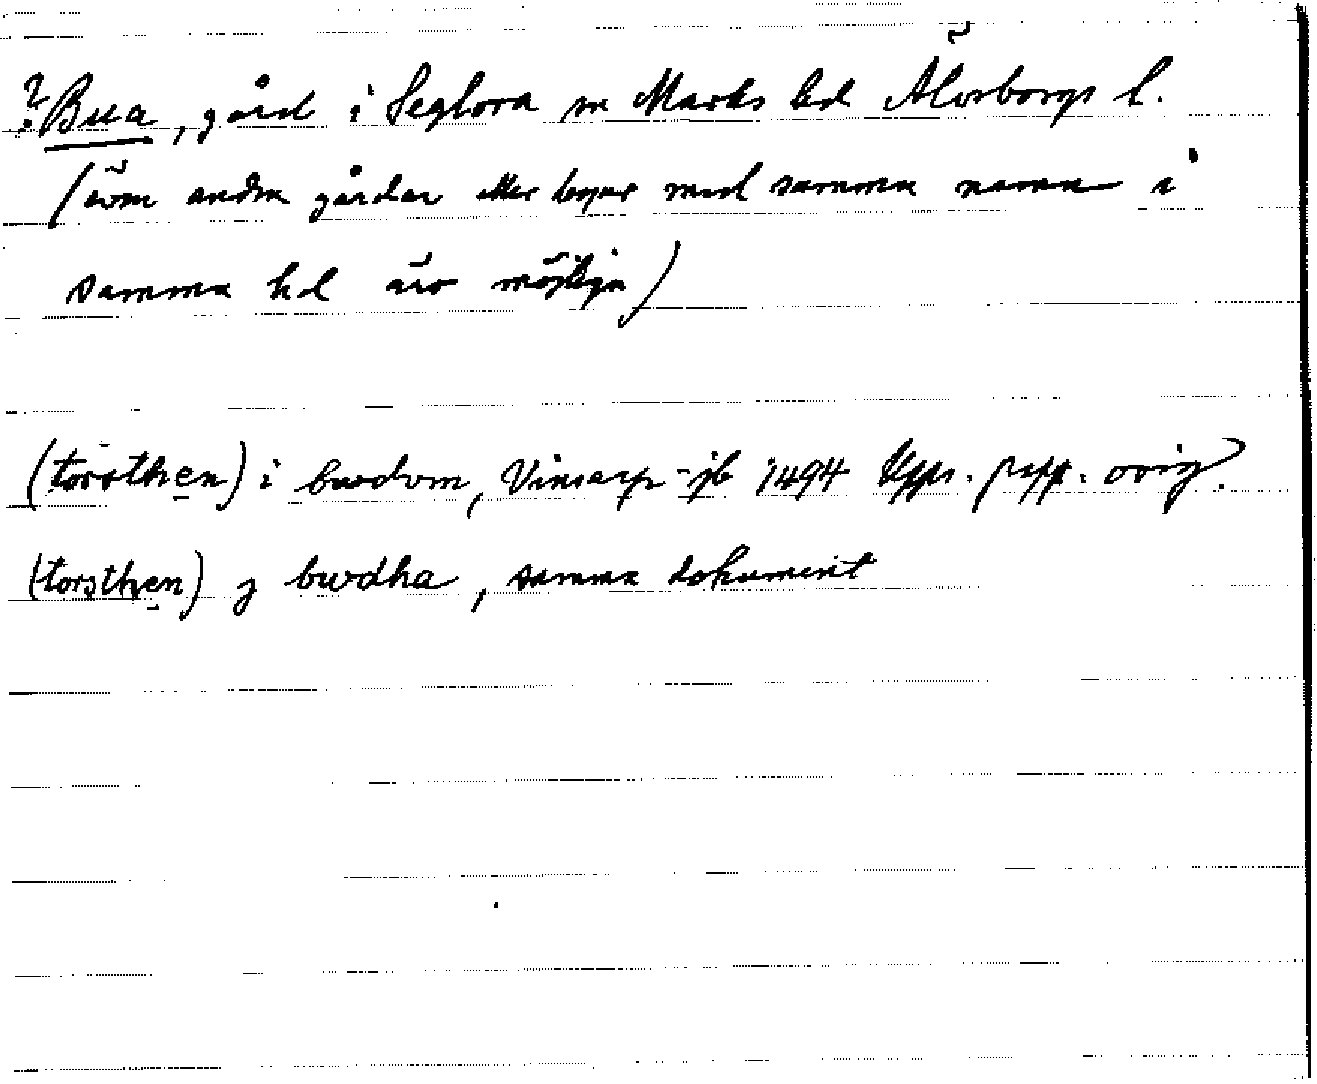 ?Bua, gård i Seglora sn Marks hd Älvsborgs l.
(även andra gårdar eller byar med samma namn i
samma hd äro möjliga)
(torsthen) i bwdom, Vinsarp-jb 1494 Upps. papp. orig.
(torsthen) j bwdha, samma dokument